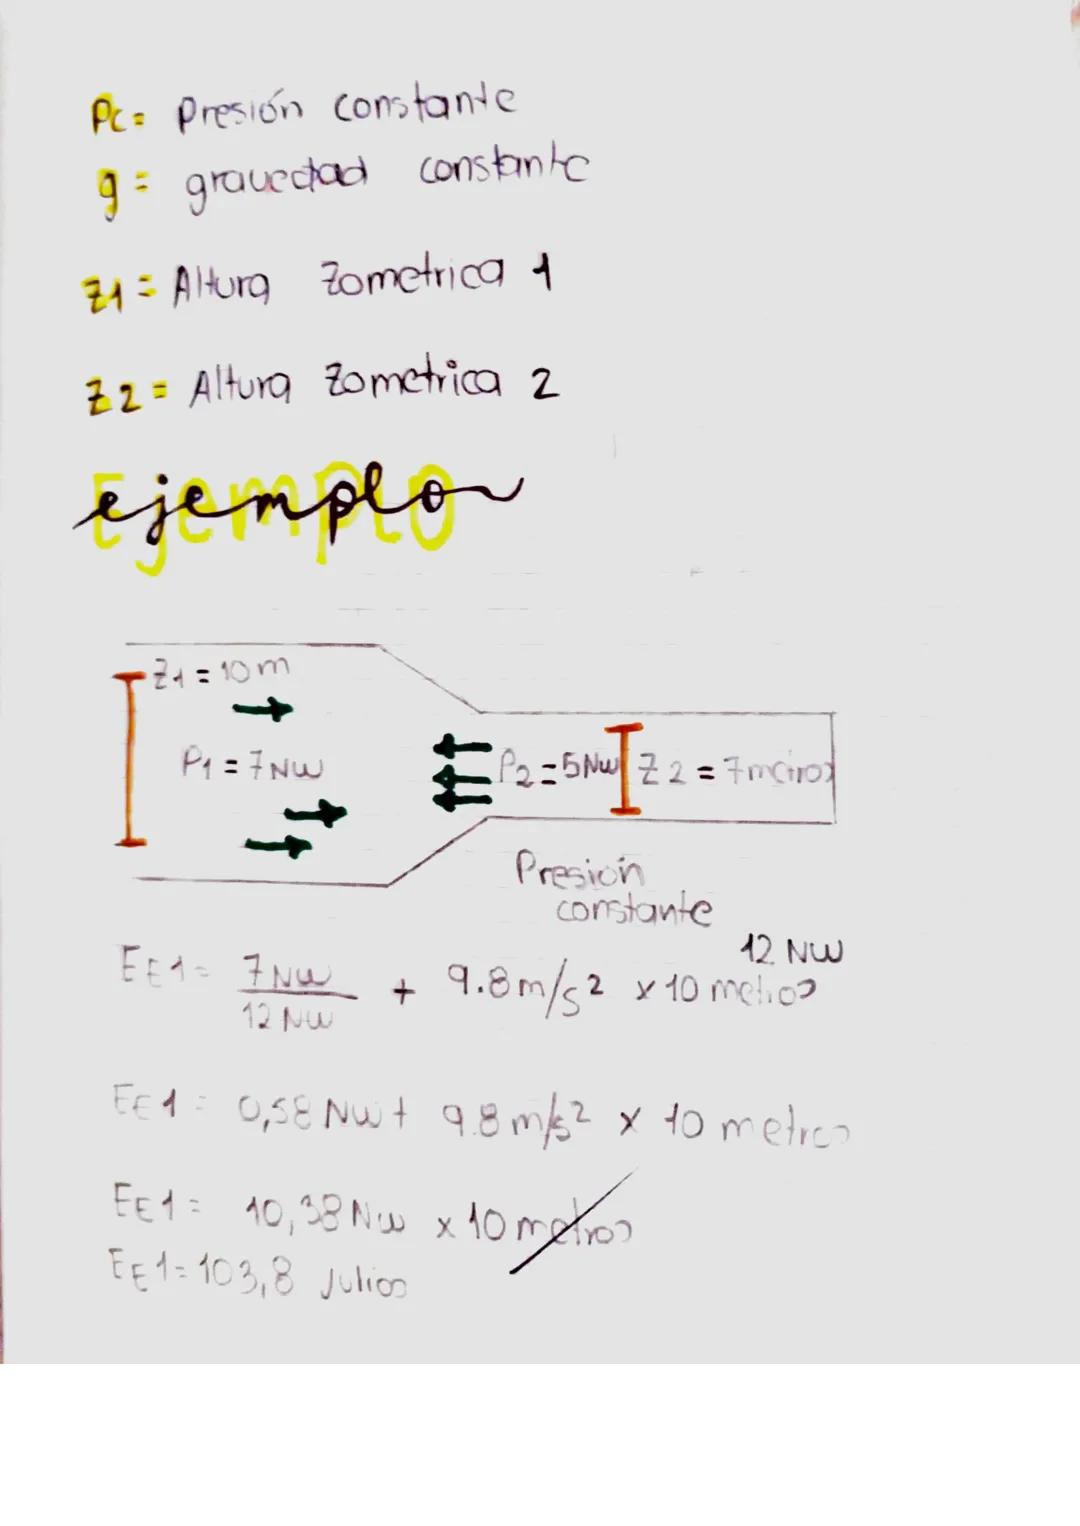 Pc= Presión constante
g= gravedad constante
Z1= Altura Zometrica 1
Z2= Altura Zometrica 2
Ejemplo
ejemplo
Z1=10m
P1=7NW
P2=5NW Z2=7metros
Presión
constante
12 NW
EE1= 7NW/12NW + 9.8m/s2 x 10 metros
EE1= 0,58 NW+ 9.8m/s2 x 10 metros
EE1= 10,38NW x 10 metros
EE1=103,8 Julios